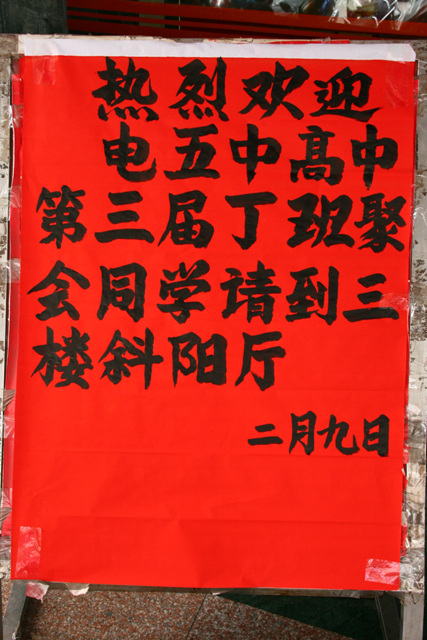 热烈欢迎
电五中高中
第三届丁班聚
会同学请到三
楼斜阳厅
二月九日